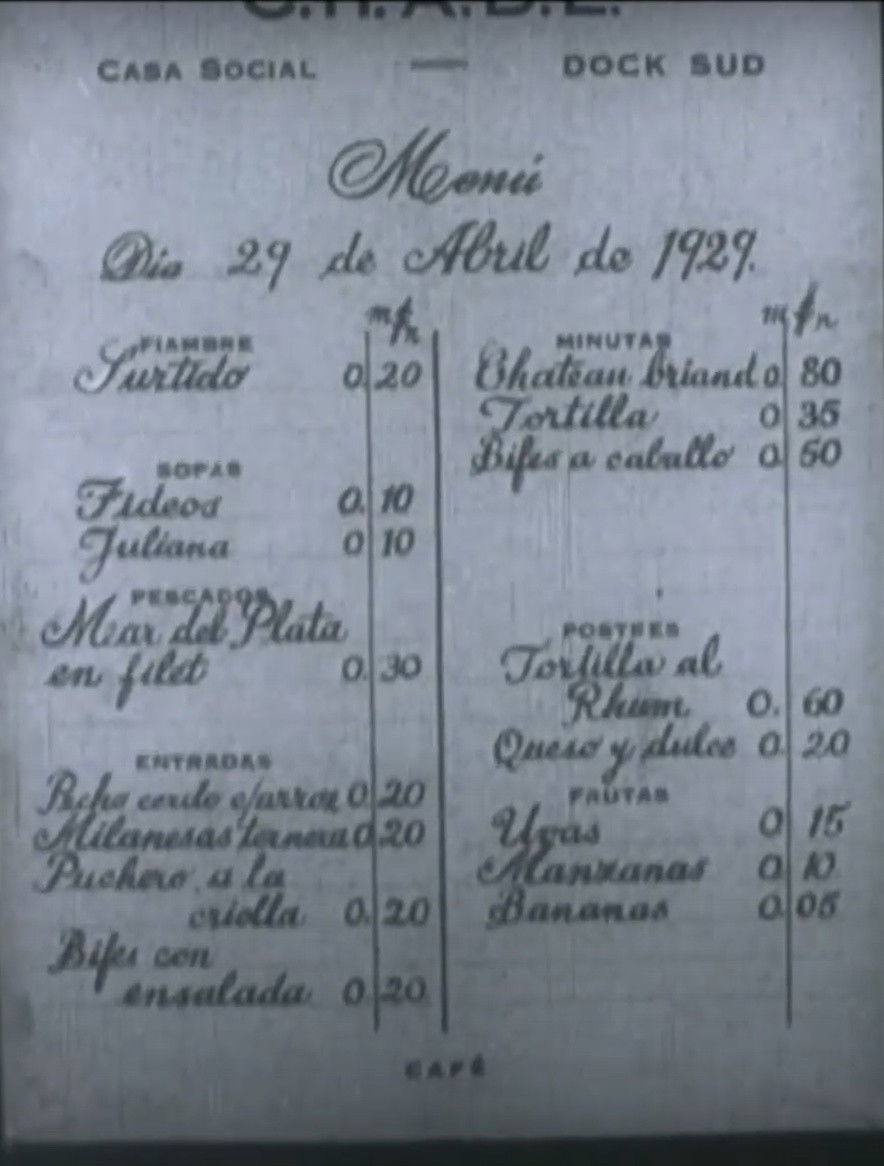 C.H.A.D.E.
CASA SOCIAL — DOCK SUD
Menú
Dia 29 de Abril de 1929.
m$n
FIAMBRE
Surtido 0.20
SOPAS
Fideos 0.10
Juliana 0 10
PESCADOS
Mar del Plata
en filet 0.30
ENTRADAS
cerdo c/arroz 0.20
Milanesas ternera 0.20
Puchero a la
criolla 0.20
Bifes con
ensalada 0.20
m$n
MINUTAS
Chateau briand 0 80
Tortilla 0 35
Bifes a caballo 0 50
POSTRES
Tortilla al
Rhum 0. 60
Queso y dulce 0. 20
FRUTAS
Uvas 0 15
Manzanas 0 10
Bananas 0 05
CAFÉ